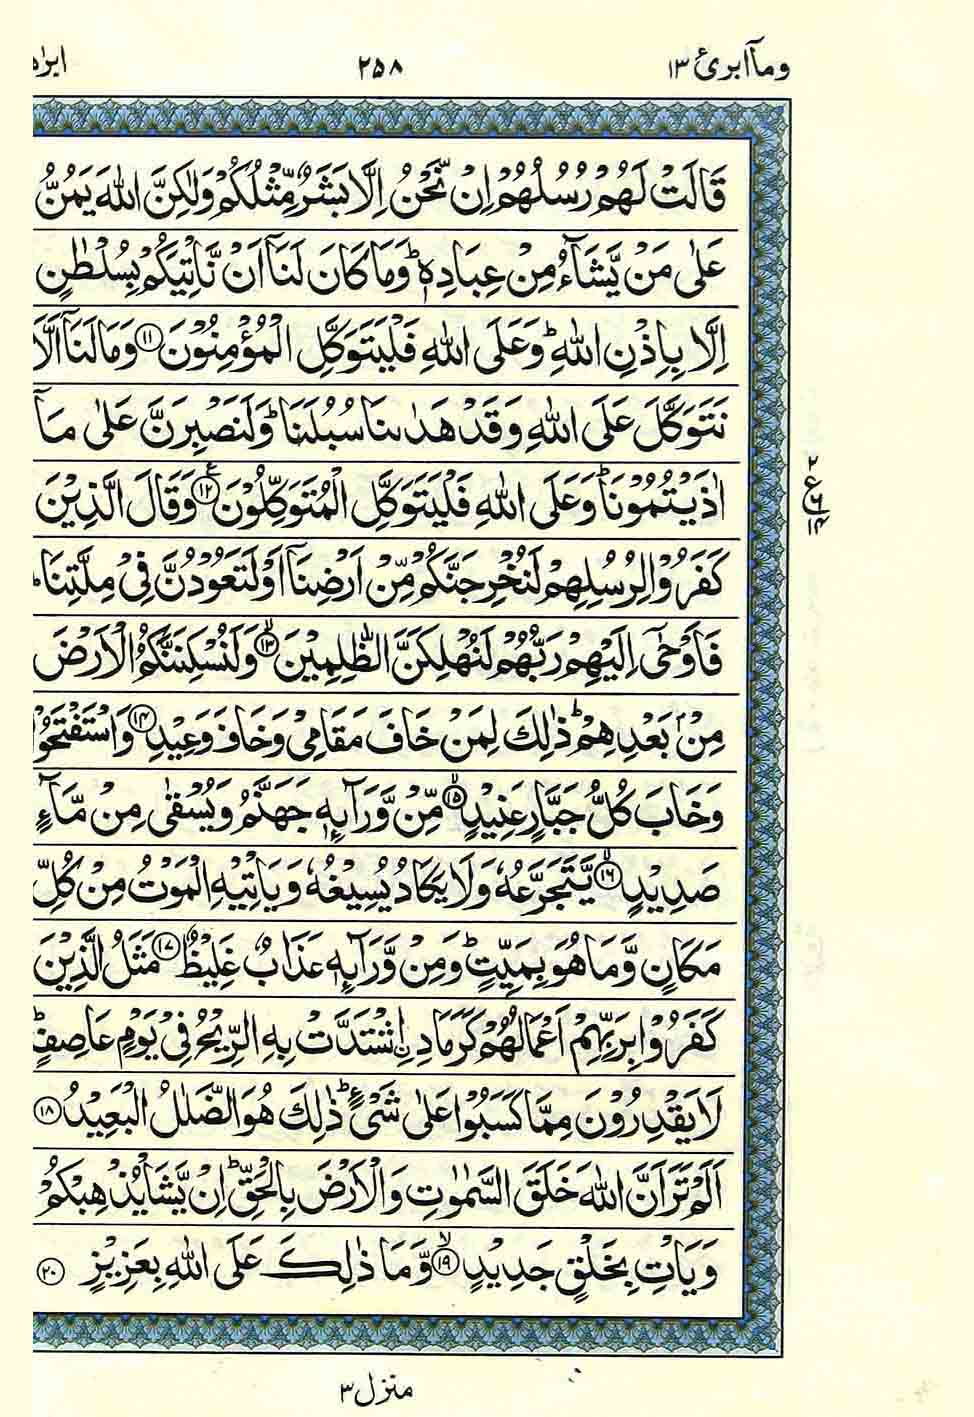 وماۤ ابرئ ١٣
٢٥٨
قَالَتْ لَهُمْ رُسُلُهُمْ اِنْ نَّحْنُ اِلَّا بَشَرٌ مِّثْلُكُمْ وَلٰكِنَّ اللّٰهَ يَمُنُّ
عَلٰى مَنْ يَّشَآءُ مِنْ عِبَادِهٖ ؕ وَمَا كَانَ لَنَاۤ اَنْ نَّاْتِيَكُمْ بِسُلْطٰنٍ
اِلَّا بِاِذْنِ اللّٰهِ ؕ وَعَلَى اللّٰهِ فَلْيَتَوَكَّلِ الْمُؤْمِنُوْنَ ۝١١ وَمَا لَنَاۤ اَلَّا
نَتَوَكَّلَ عَلَى اللّٰهِ وَقَدْ هَدٰىنَا سُبُلَنَا ؕ وَلَنَصْبِرَنَّ عَلٰى مَاۤ
اٰذَيْتُمُوْنَا ؕ وَعَلَى اللّٰهِ فَلْيَتَوَكَّلِ الْمُتَوَكِّلُوْنَ ۝١٢ وَقَالَ الَّذِيْنَ
كَفَرُوْا لِرُسُلِهِمْ لَنُخْرِجَنَّكُمْ مِّنْ اَرْضِنَاۤ اَوْ لَتَعُوْدُنَّ فِيْ مِلَّتِنَا ؕ
فَاَوْحٰۤى اِلَيْهِمْ رَبُّهُمْ لَنُهْلِكَنَّ الظّٰلِمِيْنَ ۝١٣ وَلَنُسْكِنَنَّكُمُ الْاَرْضَ
مِنْۢ بَعْدِهِمْ ؕ ذٰلِكَ لِمَنْ خَافَ مَقَامِيْ وَخَافَ وَعِيْدِ ۝١٤ وَاسْتَفْتَحُوْا
وَخَابَ كُلُّ جَبَّارٍ عَنِيْدٍ ۝١٥ مِّنْ وَّرَآىِٕهٖ جَهَنَّمُ وَيُسْقٰى مِنْ مَّآءٍ
صَدِيْدٍ ۝١٦ يَّتَجَرَّعُهٗ وَلَا يَكَادُ يُسِيْغُهٗ وَيَاْتِيْهِ الْمَوْتُ مِنْ كُلِّ
مَكَانٍ وَّمَا هُوَ بِمَيِّتٍ ؕ وَمِنْ وَّرَآىِٕهٖ عَذَابٌ غَلِيْظٌ ۝١٧ مَثَلُ الَّذِيْنَ
كَفَرُوْا بِرَبِّهِمْ اَعْمَالُهُمْ كَرَمَادِ ِۨاشْتَدَّتْ بِهِ الرِّيْحُ فِيْ يَوْمٍ عَاصِفٍ ؕ
لَا يَقْدِرُوْنَ مِمَّا كَسَبُوْا عَلٰى شَيْءٍ ؕ ذٰلِكَ هُوَ الضَّلٰلُ الْبَعِيْدُ ۝١٨
اَلَمْ تَرَ اَنَّ اللّٰهَ خَلَقَ السَّمٰوٰتِ وَالْاَرْضَ بِالْحَقِّ ؕ اِنْ يَّشَاْ يُذْهِبْكُمْ
وَيَاْتِ بِخَلْقٍ جَدِيْدٍ ۝١٩ وَّمَا ذٰلِكَ عَلَى اللّٰهِ بِعَزِيْزٍ ۝٢٠
منزل ٣